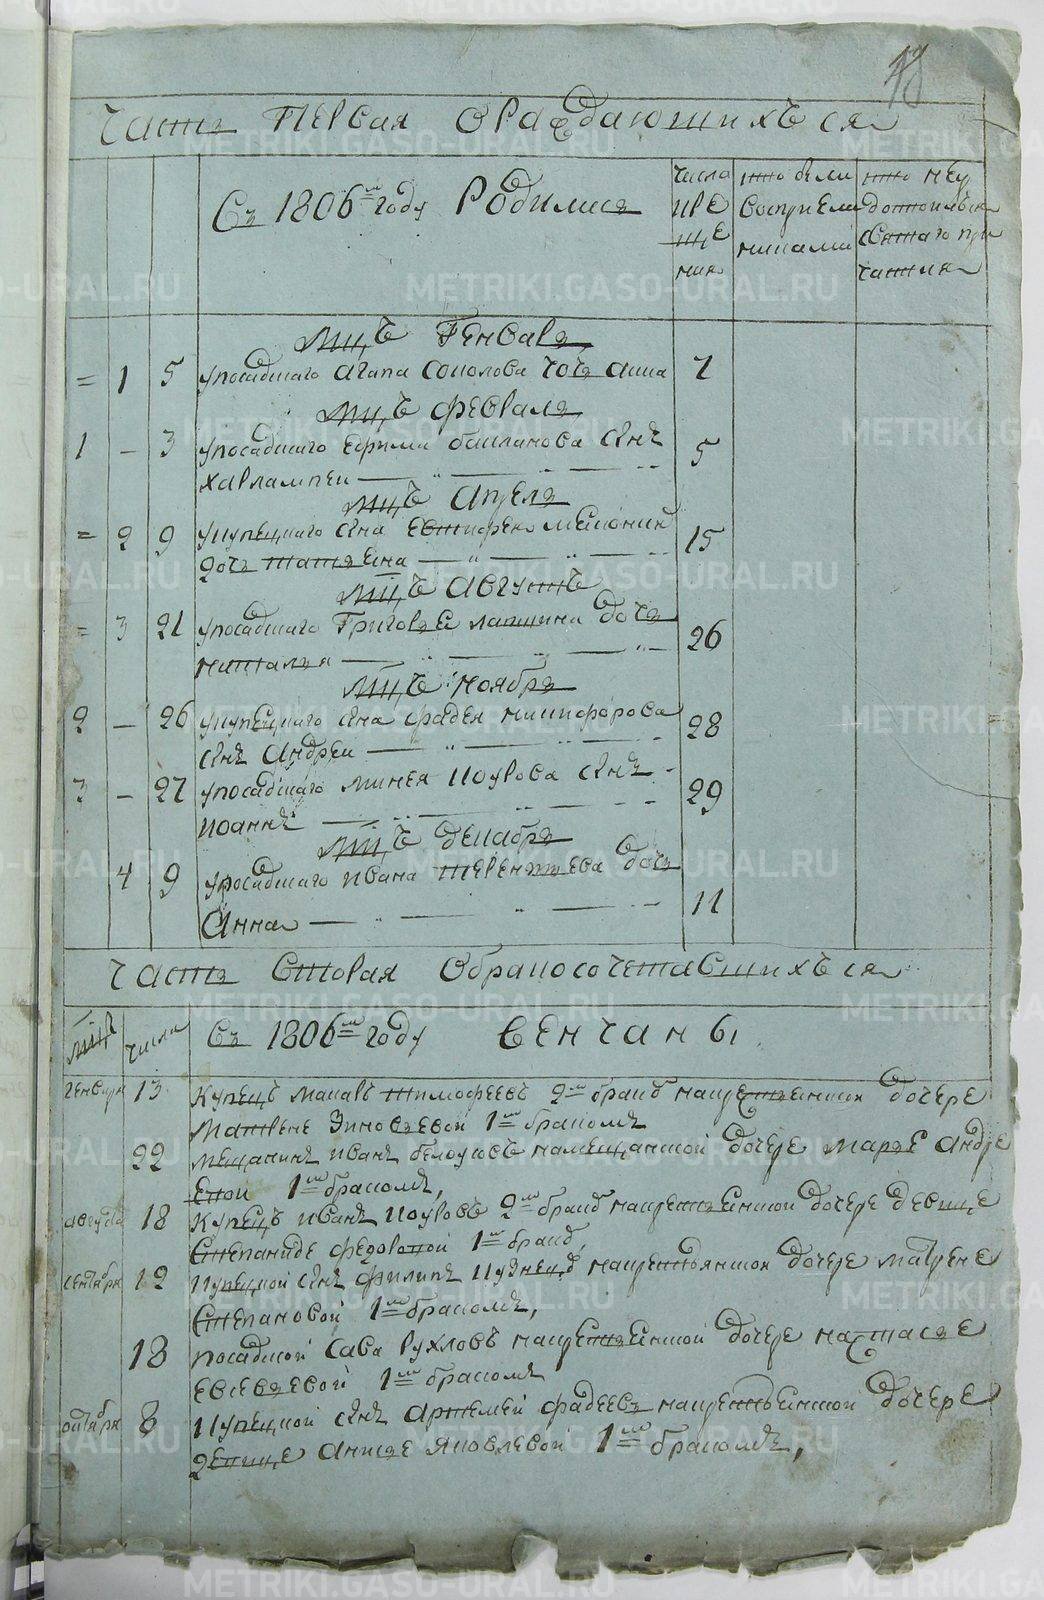 18
Часть Первая О раждающихъся
Съ 1806м году Родились
числа кре ще ния
кто были восприем никами
кто неу достоился святаго при частия
Мцъ Генваль
= 1 5 упосадцкаго Агапа Соколова дочь Анна 7
Мцъ Февраля
1 – 3 упосадцкаго Ефрима сынъ 5
Харлампеи
Мцъ Апреля
= 2 9 укупецкаго сына Евтифея 15
дочь Татьеяна
Мцъ Августъ
= 3 21 упосадцкаго Григорья Лапшина дочь 26
Наталья
Мцъ Ноября
2 – 26 укупецкаго сына Фадея Никифорова 28
сынъ Андреи
3 – 27 упосадцкаго Минея сынъ 29
Иоаннъ
Мцъ Декабря
4 9 упосадцкаго Ивана Терентьева дочь 11
Анна
Часть Вторая О бракосочетавшихъся
Мца Числа Съ 1806м году венчаны
генваря 13 Купецъ Тимофеевъ 2м браком накрестьянской дочере
Матрене Зиновьевой 1м бракомъ
22 мещанинъ Иванъ Белоусовъ намещанской дочере Марье Андре
евой 1м бракомъ,
августа 18 Купецъ Иванъ 2м браком накрестьянской дочере девице
Степаниде Федоровой 1м брако,
сентября 12 Купецкой сынъ Филипъ Кузнецо накрестьянской дочере Матрене
Степановой 1м бракомъ,
18 посадцкой Сава Рухловъ накрестьянской дочере Настасье
Евсевьевой 1м бракомъ
октября 8 Купецкой сынъ Артемей Фадеевъ накрестьянской дочере
девице Анисье Яковлевой 1м бракомъ,
METRIKI.GASO-URAL.RU